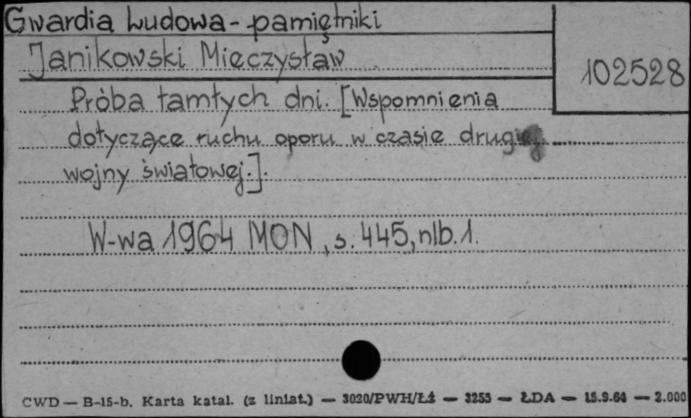 Gwardia Ludowa - pamiętniki
Janikowski Mieczysław
102528
Próba tamtych dni. [Wspomnienia
dotyczące ruchu oporu w czasie drugiej
wojny światowej.].
W-wa 1964 MON, s. 445, nlb. 1.
CWD — B-15-b. Karta katal. (z liniat.) — 3020/PWH/Łź — 3255 — ŁDA — 15.9.64 — 2.000